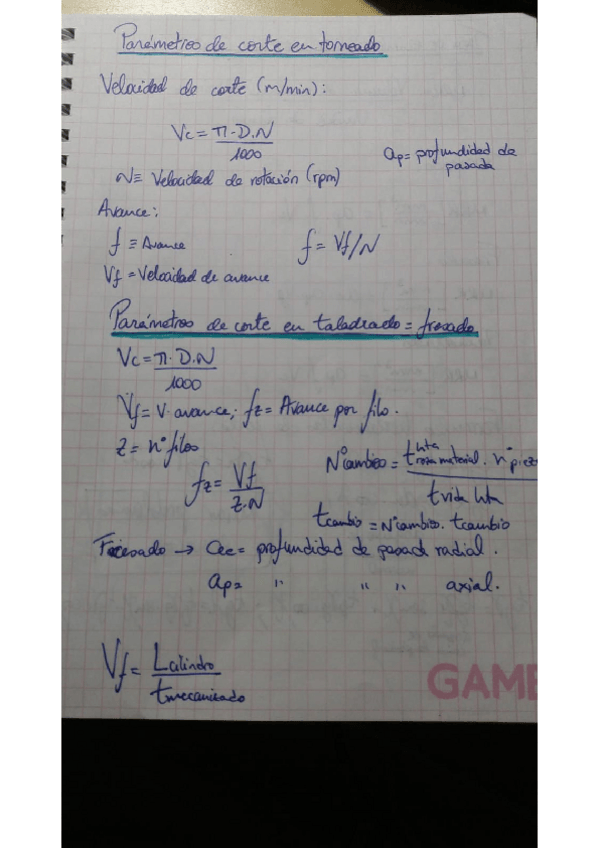 Parámetros de corte en torneado
Velocidad de corte (m/min):
Vc = π·D·N / 1000
ap = profundidad de pasada
N ≡ Velocidad de rotación (rpm)
Avance:
f ≡ Avance
f = Vf/N
Vf = Velocidad de avance
Parámetros de corte en taladrado = fresado
Vc = π·D·N / 1000
Vf = V. avance; fz = Avance por filo.
Z = nº filos
fz = Vf / Z·N
Nº cambios = t hta material · nº piez / t vida hta
tcambio = Nº cambios · tcambio
Fresado → ae = profundidad de pasada radial.
ap = " " " axial.
Vf = Lcilindro / tmecanizado
GAME